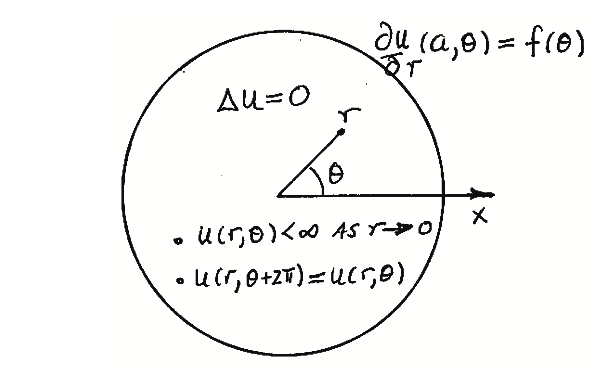 ∂u/∂r (a,θ) = f(θ)
Δu=0
r
θ
x
• u(r,θ)<∞ AS r→0
• u(r,θ+2π)=u(r,θ)